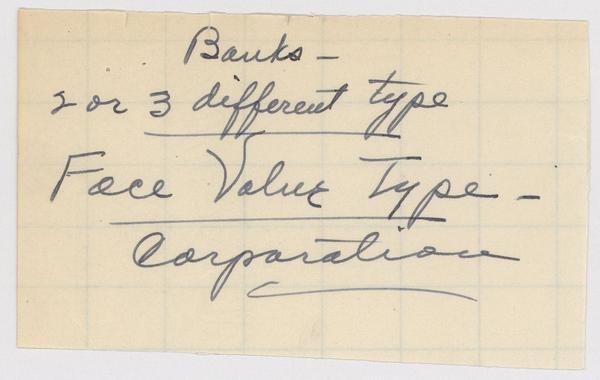 Banks -
2 or 3 different type
Face Value Type -
Corporation